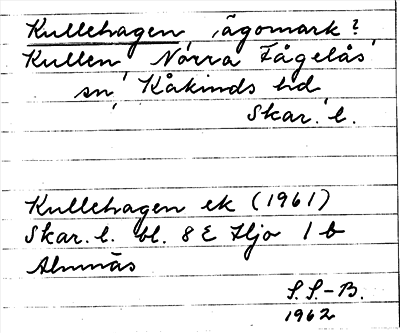 Kullehagen, ägomark?
Kullen, Norra Fågelås
sn, Kåkinds hd,
Skar. l.
Kullehagen ek (1961)
Skar. l. bl. 8 E Hjo 1 b
Almnäs
S.S.-B.
1962